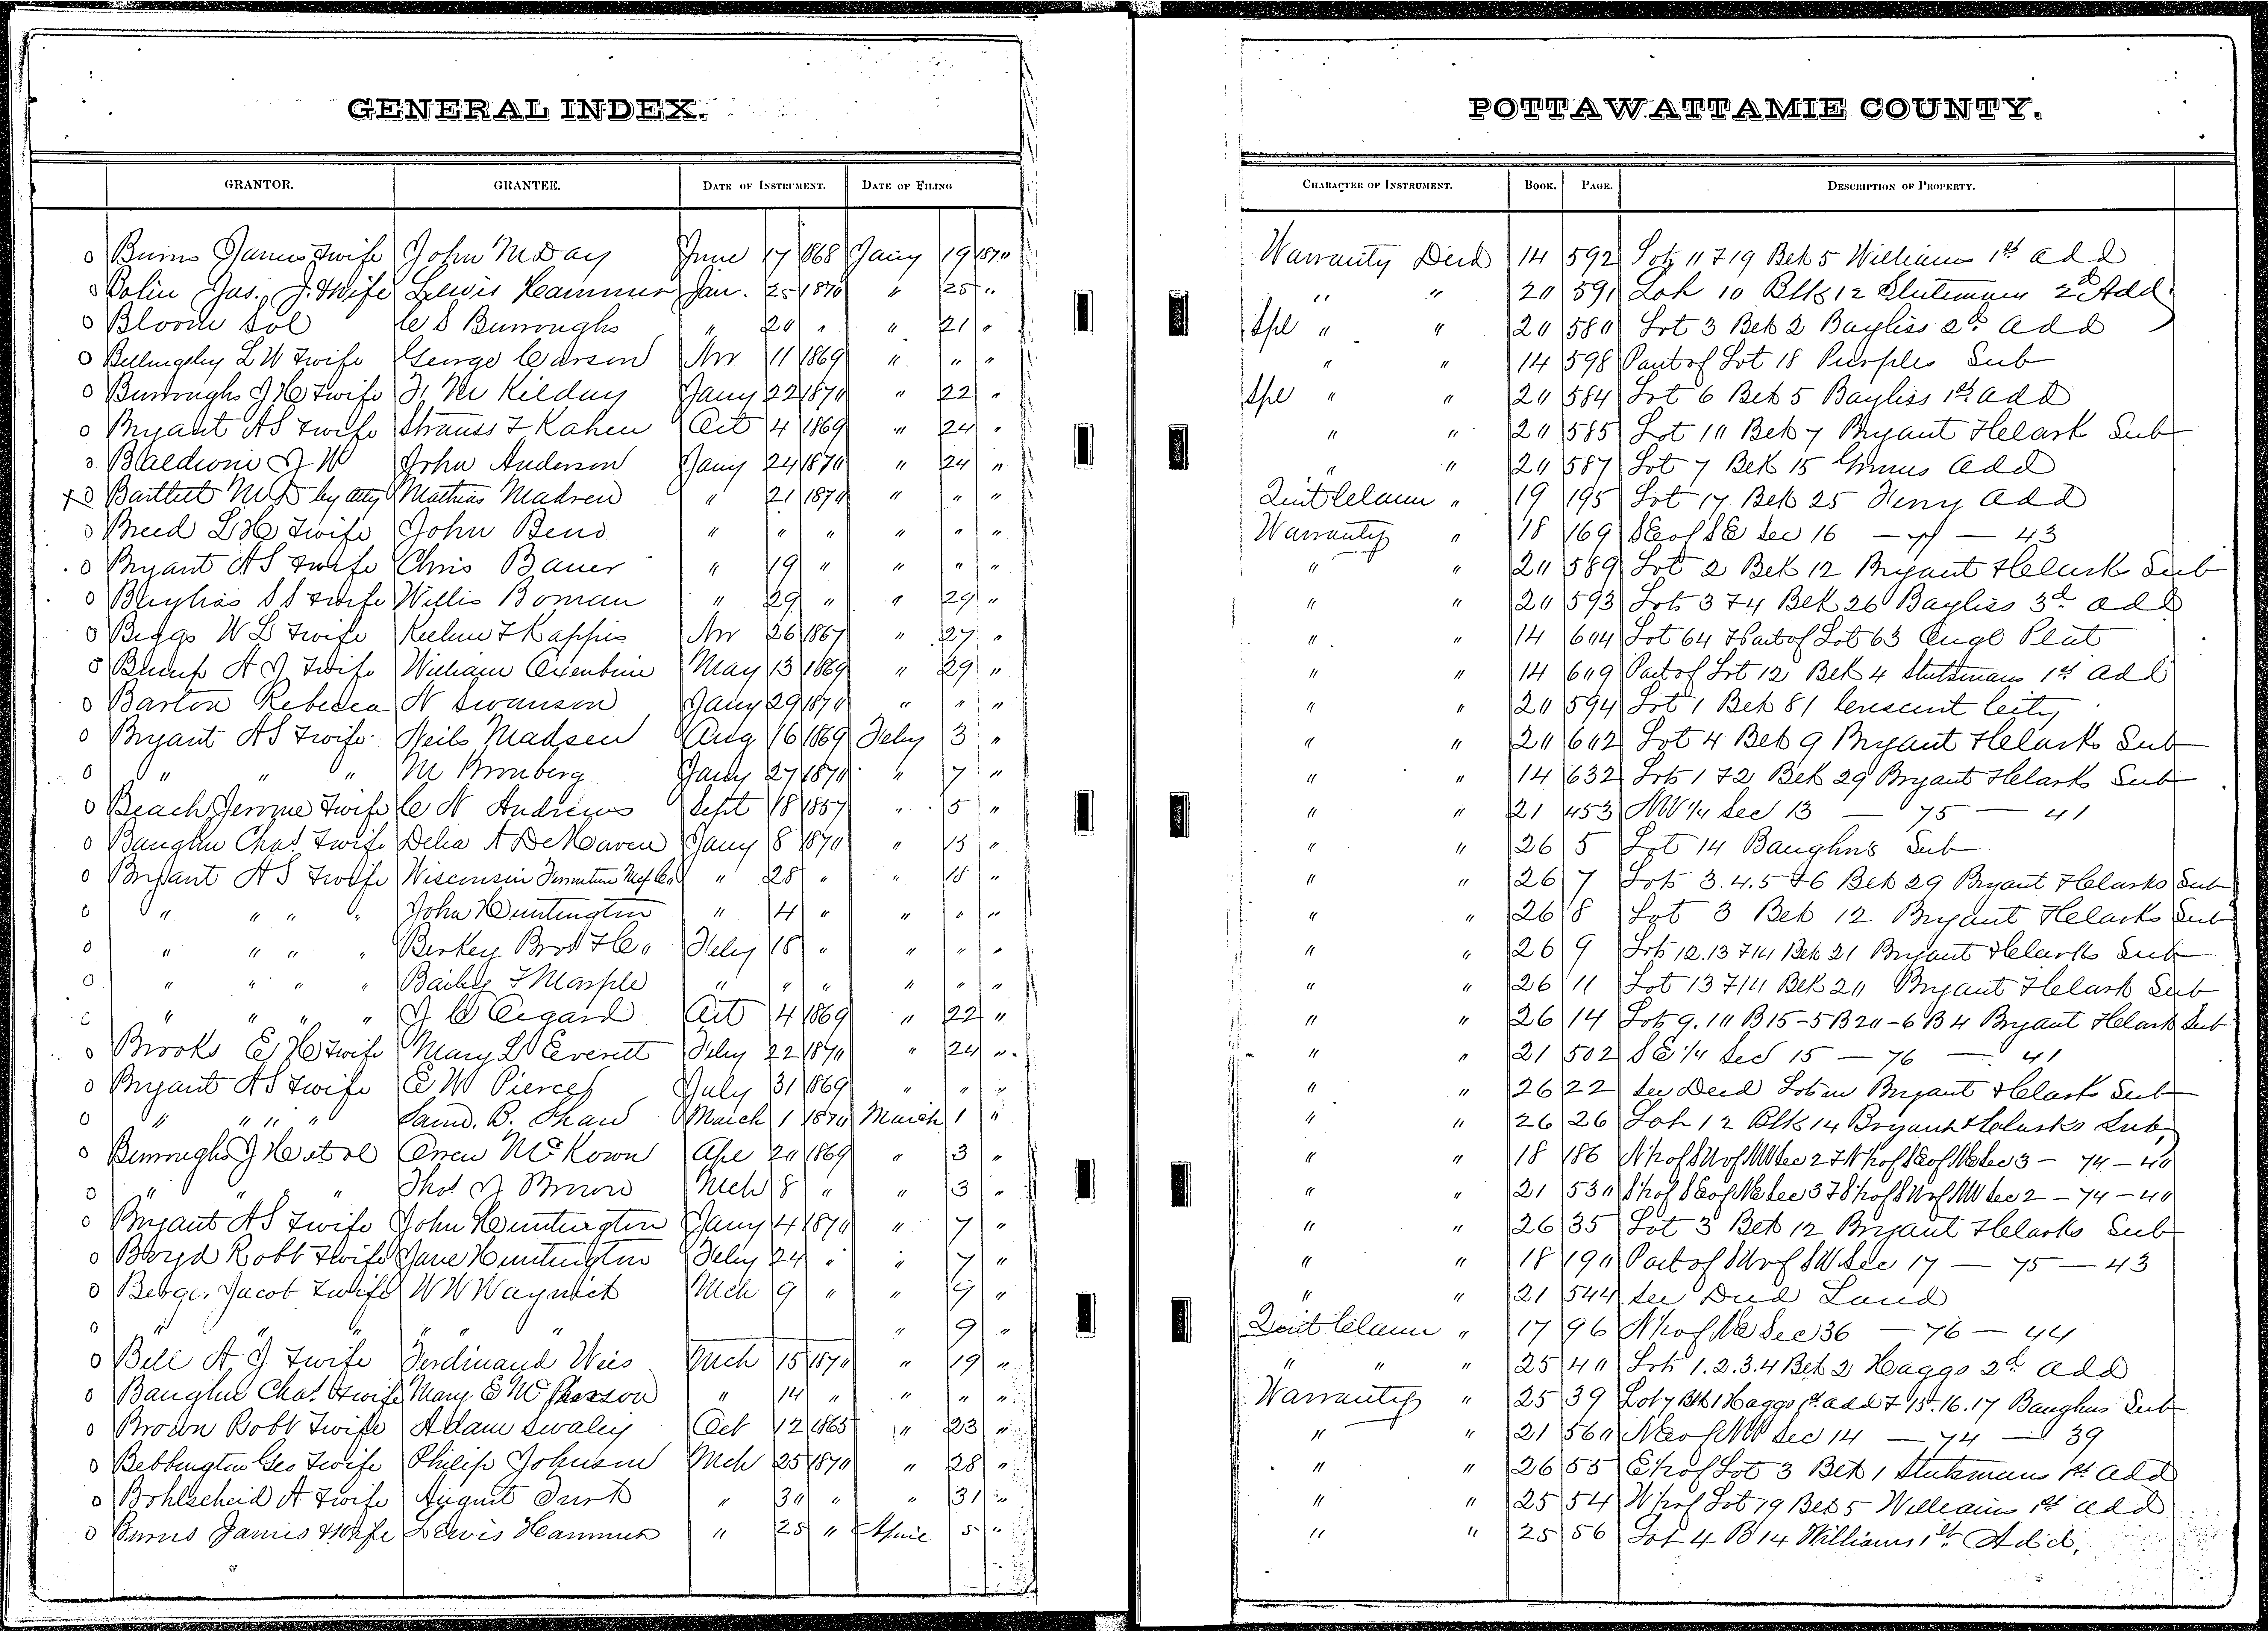 GENERAL INDEX.
GRANTOR. GRANTEE. DATE OF INSTRUMENT. DATE OF FILING
o Burns James & wife John M Day June 17 1868 Jany 19 1870
o Bolin Jas. J. & Wife Lewis Hammer Jan. 25 1870 " 25 "
o Bloom Sol C S Burroughs " 20 " " 21 "
o Bellingsley L W & wife George Carson Nov 11 1869 " " "
o Burroughs J H & wife Kilday Jany 22 1870 " 22 "
o Bryant A S & wife Strauss & Kahen Oct 4 1869 " 24 "
o J W John Anderson Jany 24 1870 " 24 "
x o Bartlett M D by atty Mathias Madsen " 21 1870 " " "
o Breed L H & wife John Beno " " " " " "
o Bryant A S & wife Chris Bauer " 19 " " " "
o Bayliss S S & wife Willis Boman " 29 " " 29 "
o Beggs W L & wife Keeline & Nov 26 1867 " 27 "
o Bump A J & wife William May 13 1869 " 29 "
o Barton Rebecca N Swanson Jany 29 1870 " " "
o Bryant A S & wife Neils Madsen Aug 16 1869 Feby 3 "
o " " " M Bromberg Jany 27 1870 " 7 "
o Beach Jerome & wife C N Andrews Sept 18 1857 " 5 "
o Baughn Chas & wife Delia A DeHaven Jany 8 1870 " 15 "
o Bryant A S & wife Wisconsin Furniture Mnf Co " 28 " " 18 "
o " " " " John Huntington " 4 " " " "
o " " " " Berkey Bros & Co Feby 18 " " " "
o " " " " Bailey & Marple " " " " " "
o " " " " J C Oct 4 1869 " 22 "
o Brooks E H & wife Mary L Everett Feby 22 1870 " 24 "
o Bryant A S & wife E W Pierce July 31 1869 " " "
o " " " " Saml. B. Shaw March 1 1870 March 1 "
o Burroughs J H et al Orren McKown Apr 20 1869 " 3 "
o " " " Thos J Brown Mch 8 " " 3 "
o Bryant A S & wife John Huntington Jany 4 1870 " 7 "
o Boyd Robt & wife Jane Huntington Feby 24 " " 7 "
o Jacob & wife W W Waynick Mch 9 " " 9 "
o " " " " " " 9 "
o Bell A J & wife Ferdinand Weis Mch 15 1870 " 19 "
o Baughn Chas. & wife Mary E " 14 " " " "
o Brown Robt & wife Adam Swaley Oct 12 1865 " 23 "
o Bebbington Geo & wife Philip Johnson Mch 25 1870 " 28 "
o Bohlscheid A & wife August " 30 " " 31 "
o Burns James & Wife Lewis Hammer " 25 " April 5 "
POTTAWATTAMIE COUNTY.
CHARACTER OF INSTRUMENT. BOOK. PAGE. DESCRIPTION OF PROPERTY.
Warranty Deed 14 592 Lots 11 & 19 Blk 5 Williams 1st add
" " 20 591 Lot 10 Blk 12 Stutsmans 2d Add.
Spl " " 20 580 Lot 3 Blk 2 Bayliss 2d add
" " 14 598 Part of Lot 18 Purples Sub
Spl " " 20 584 Lot 6 Blk 5 Bayliss 1st add
" " 20 585 Lot 10 Blk 7 Bryant & Clark Sub
" " 20 587 Lot 7 Blk 15 Grimes add
Quit Claim " 19 195 Lot 17 Blk 25 Ferry add
Warranty " 18 169 SE of SE Sec 16 — 77 — 43
" " 20 589 Lot 2 Blk 12 Bryant & Clark Sub
" " 20 593 Lots 3 & 4 Blk 26 Bayliss 3d add
" " 14 604 Lot 64 & Part of Lot 63 Orig Plat
" " 14 609 Part of Lot 12 Blk 4 Stutsmans 1st add
" " 20 594 Lot 1 Blk 81 Crescent City
" " 20 602 Lot 4 Blk 9 Bryant & Clarks Sub
" " 14 632 Lots 1 & 2 Blk 29 Bryant & Clarks Sub
" " 21 453 NW 1/4 Sec 13 — 75 — 41
" " 26 5 Lot 14 Baughns Sub
" " 26 7 Lots 3.4.5 & 6 Blk 29 Bryant & Clarks Sub
" " 26 8 Lot 3 Blk 12 Bryant & Clarks Sub
" " 26 9 Lots 12.13 & 14 Blk 21 Bryant & Clarks Sub
" " 26 11 Lot 13 & 14 Blk 20 Bryant & Clark Sub
" " 26 14 Lots 9.10 B 15 - 5 B 20 - 6 B 4 Bryant & Clark Sub
" " 21 502 SE 1/4 Sec 15 — 76 — 41
" " 26 22 See Deed Lots in Bryant & Clarks Sub
" " 26 26 Lot 12 Blk 14 Bryant & Clarks Sub,
" " 18 186 N ½ of SW of NW Sec 2 & N ½ of SE of NE Sec 3 — 74 — 40
" " 21 530 S ½ of SE of NE Sec 3 & S ½ of SW of NW Sec 2 — 74 — 40
" " 26 35 Lot 3 Blk 12 Bryant & Clarks Sub
" " 18 190 Part of SW of SW Sec 17 — 75 — 43
" " 21 544 See Deed Land
Quit Claim " 17 96 N ½ of NE Sec 36 — 76 — 44
" " " 25 40 Lots 1.2.3.4 Blk 2 Haggs 2d add
Warranty " 25 39 Lot 7 Blk 1 Haggs 1st add & 15.16.17 Baughns Sub
" " 21 560 NE of NW Sec 14 — 74 — 39
" " 26 55 E ½ of Lot 3 Blk 1 Stutsmans 1st add
" " 25 54 W ½ of Lot 19 Blk 5 Williams 1st add
" " 25 56 Lot 4 B 14 Williams 1st Add.